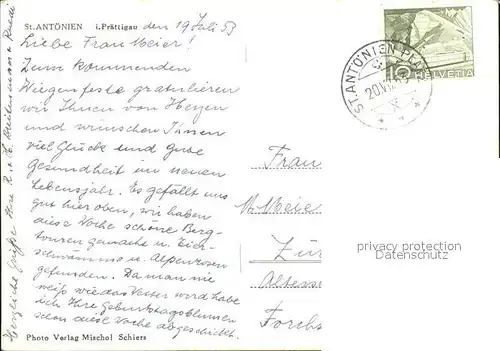 St. ANTÖNIEN i. Prättigau den 19 Juli 53
Liebe Frau Meier!
Zum kommenden
Wiegenfeste gratulieren
wir Ihnen von Herzen
und wünschen Ihnen
viel Glück und gute
Gesundheit im neuen
Lebensjahr. Es gefällt uns
gut hier oben, wir haben
diese Woche schöne Berg-
touren gemacht u. Eier-
schwämme u. Alpenrosen
gefunden. Da man nie
weiß wie das Wetter wird habe
ich Ihre Geburtstagsblumen
schon diese Woche abgeschickt.
Herzliche Grüße Ihre R. u. E.
Photo Verlag Mischol Schiers
10 HELVETIA
ST. ANTÖNIEN-PLA
20.VII.53
Frau
M. Meie
Zür
Altens
Forchs
privacy protection
Datenschutz